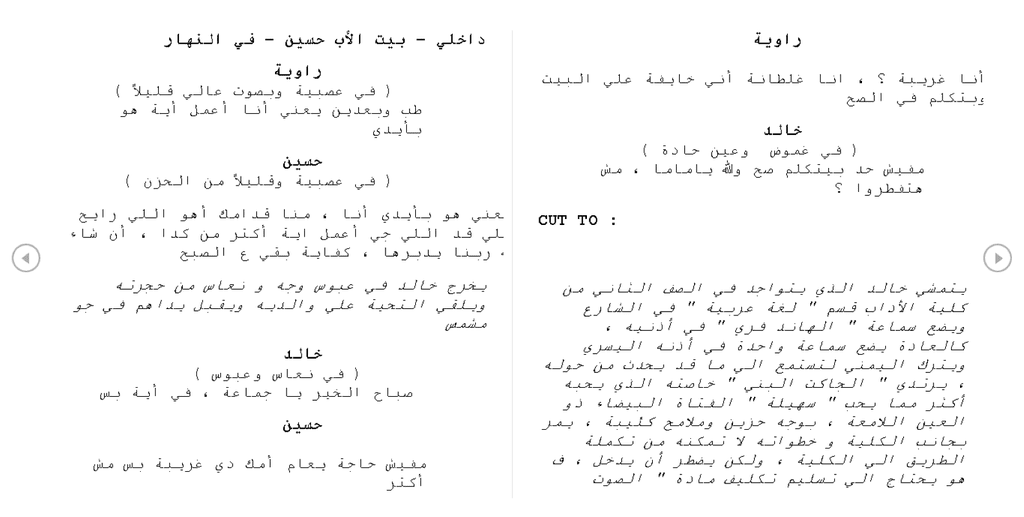 داخلي – بيت الأب حسين – في النهار
راوية
( في عصبية وبصوت عالي قليلاً )
طب وبعدين يعني أنا أعمل أية هو
بأيدي
حسين
( في عصبية وقليلاً من الحزن )
يعني هو بأيدي أنا ، منا قدامك أهو اللي رايح
قد اللي جي أعمل اية أكتر من كدا ، أن شاء
ربنا يدبرها ، كفاية بقي ع الصبح
يخرج خالد في عبوس وجه و نعاس من حجرته
ويلقي التحية علي والديه ويقبل يداهم في جو
مشمس
خالد
( في نعاس وعبوس )
صباح الخير يا جماعة ، في أية بس
حسين
مفيش حاجة يعام أمك دي غريبة بس مش
أكتر
راوية
أنا غريبة ؟ ، انا غلطانة أني خايفة علي البيت
وبتكلم في الصح
خالد
( في غموض وعين حادة )
مفيش حد بيتكلم صح والله ياماما ، مش
هتفطروا ؟
CUT TO :
يتمشي خالد الذي يتواجد في الصف الثاني من
كلية الأداب قسم " لغة عربية " في الشارع
ويضع سماعة " الهاند فري " في أذنيه ،
كالعادة يضع سماعة واحدة في أذنه اليسري
ويترك اليمني لتستمع الي ما قد يحدث من حوله
، يرتدي " الجاكت البني " خاصته الذي يحبه
أكثر مما يحب " سهيلة " الفتاة البيضاء ذو
العين اللامعة ، بوجه حزين وملامح كئيبة ، يمر
بجانب الكلية و خطواته لا تمكنه من تكملة
الطريق الي الكلية ، ولكن يضطر أن يدخل ، ف
هو يحتاج الي تسليم تكليف مادة " الصوت